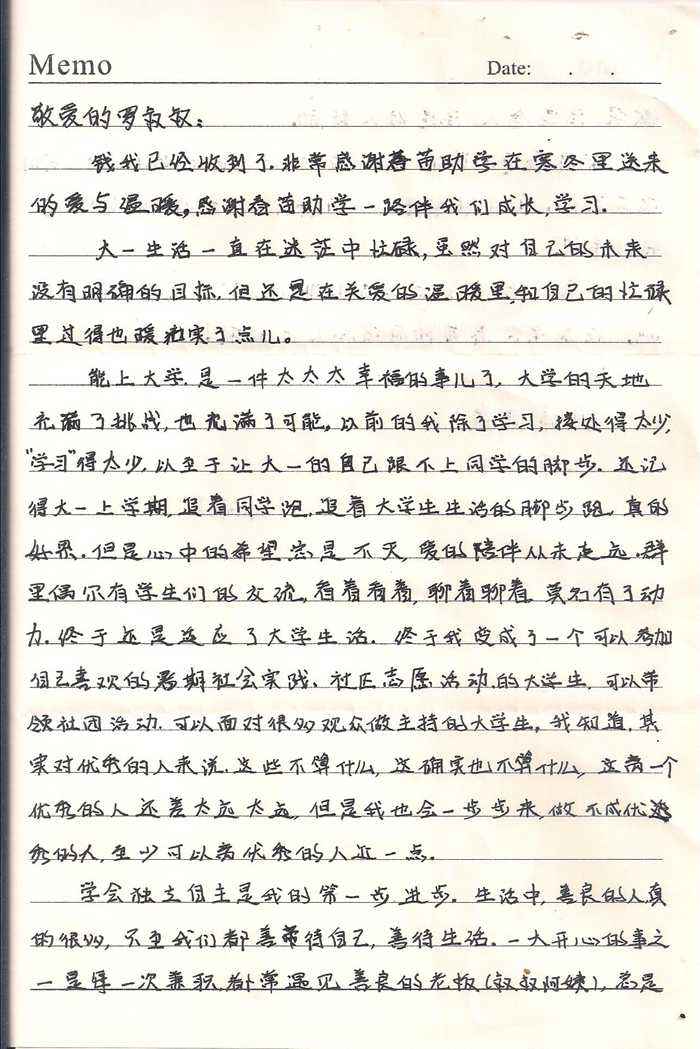 Memo
Date: . .
敬爱的罗叔叔:
钱我已经收到了.非常感谢春苗助学在寒冬里送来
的爱与温暖。感谢春苗助学一路伴我们成长,学习.
大一生活一直在迷茫中忙碌,虽然对自己的未来
没有明确的目标,但还是在关爱的温暖里,和自己的忙碌
里过得也暖和实了点儿。
能上大学是一件太太太幸福的事儿了,大学的天地
充满了挑战,也充满了可能。以前的我除了学习,接处得太少,
"学习"得太少,以至于让大一的自己跟不上同学的脚步.还记
得大一上学期,追着同学跑,追着大学生生活的脚步跑,真的
好累.但是心中的希望总是不灭,爱的陪伴从未走远.群
里偶尔有学生们的交流,看着看着,聊着聊着,莫名有了动
力.终于还是适应了大学生活.终于我变成了一个可以参加
自己喜欢的暑期社会实践、社区志愿活动的大学生,可以带
领社团活动,可以面对很多观众做主持的大学生。我知道,其
实对优秀的人来说,这些不算什么,这确实也不算什么,这离一个
优秀的人还差太远太远,但是我也会一步步来,做不成优
秀的人,至少可以离优秀的人近一点.
学会独立自主是我的第一步进步.生活中,善良的人真
的很多,不至我们都善待自己,善待生活.一大开心的事之
一是每一次兼职,都常遇见善良的老板(叔叔阿姨),总是